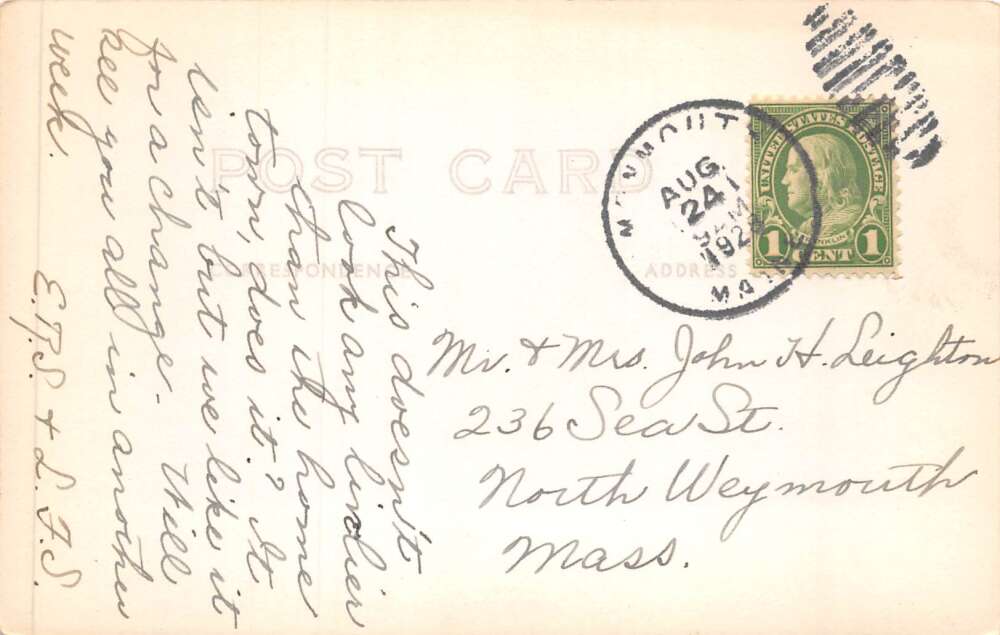 POST CARD
CORRESPONDENCE
ADDRESS
MONMOUTH
AUG.
24
AM
MAINE
UNITED STATES POSTAGE
FRANKLIN
1 CENT 1
This doesn't
look any
than the home
town, does it? It
isn't but we like it
for a change. Will
see you all in another
week.
E.P.S. & L.F.S.
Mr. & Mrs. John H. Leighton
236 Sea St.
North Weymouth
Mass.